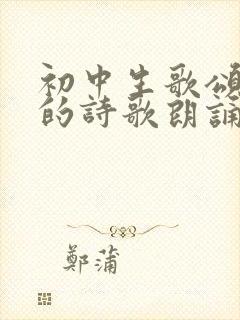 初中生歌頌
的詩歌朗誦
鄭蒲